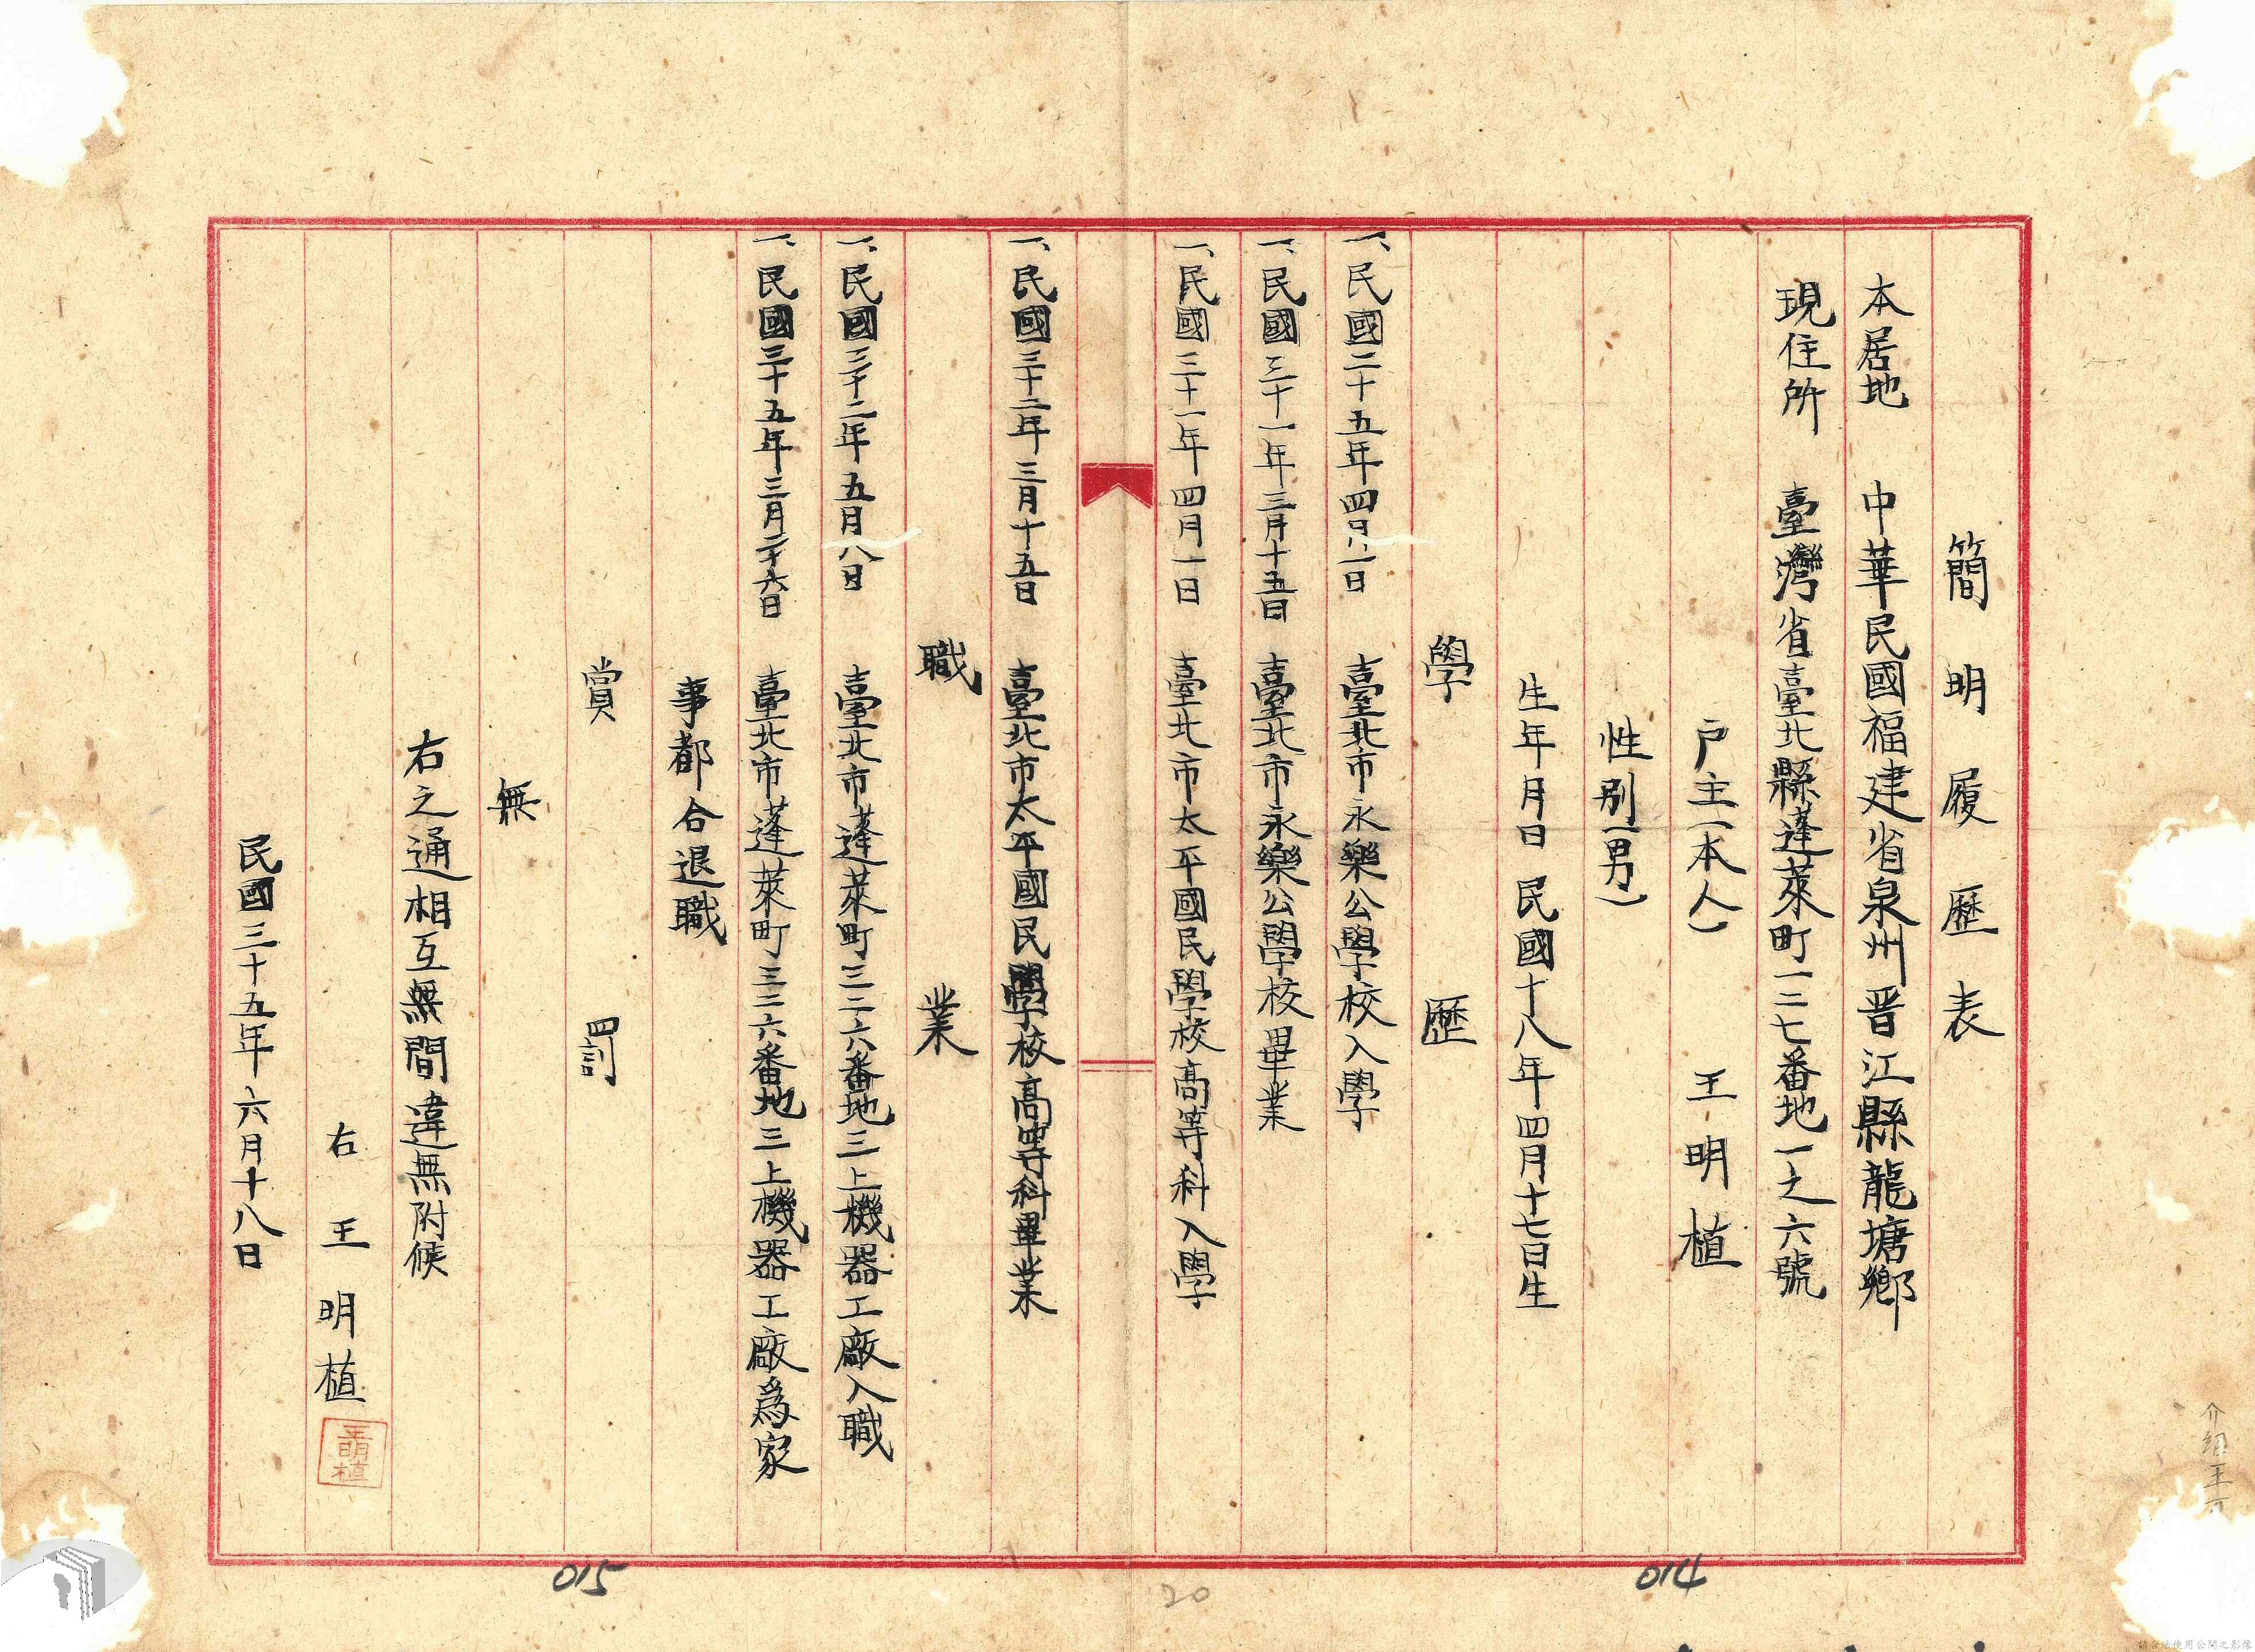 簡明履歷表
本居地 中華民國福建省泉州晋江縣龍塘鄉
現住所 臺灣省臺北縣蓬萊町一二七番地一之六號
户主(本人) 王明植
性別(男)
生年月日 民國十八年四月十七日生
學歷
一、民國二十五年四月一日 臺北市永樂公學校入學
一、民國三十一年三月十五日 臺北市永樂公學校畢業
一、民國三十一年四月一日 臺北市太平國民學校高等科入學
一、民國三十二年三月十五日 臺北市太平國民學校高等科畢業
職業
一、民國三十二年五月八日 臺北市蓬萊町三二六番地三上機器工廠入職
一、民國三十五年三月二十六日 臺北市蓬萊町三二六番地三上機器工廠爲家
事都合退職
賞罰
無
右之通相互無間違無附候
右 王明植
王明植
民國三十五年六月十八日
015
20
014
介紹 王
請合法使用公開之影像